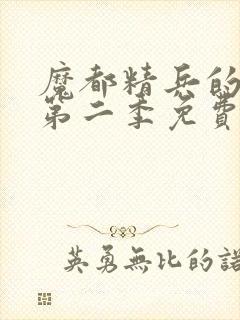 魔都精兵的
第二季免費
英勇無比的諾